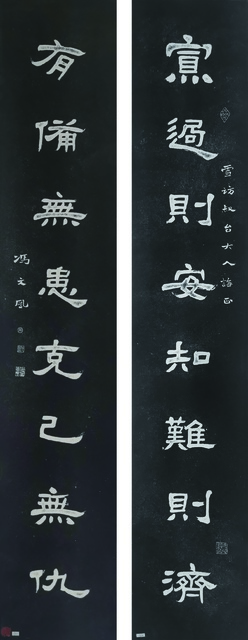 寡過則安知難則濟
叔台大人
有備無患克己無仇
馮文鳳